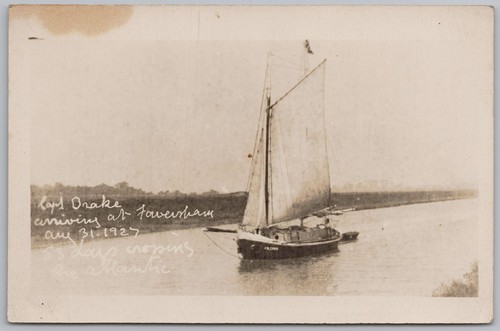 Capt Drake
arriving at Faversham
Aug 31. 1927
Days
Atlantic